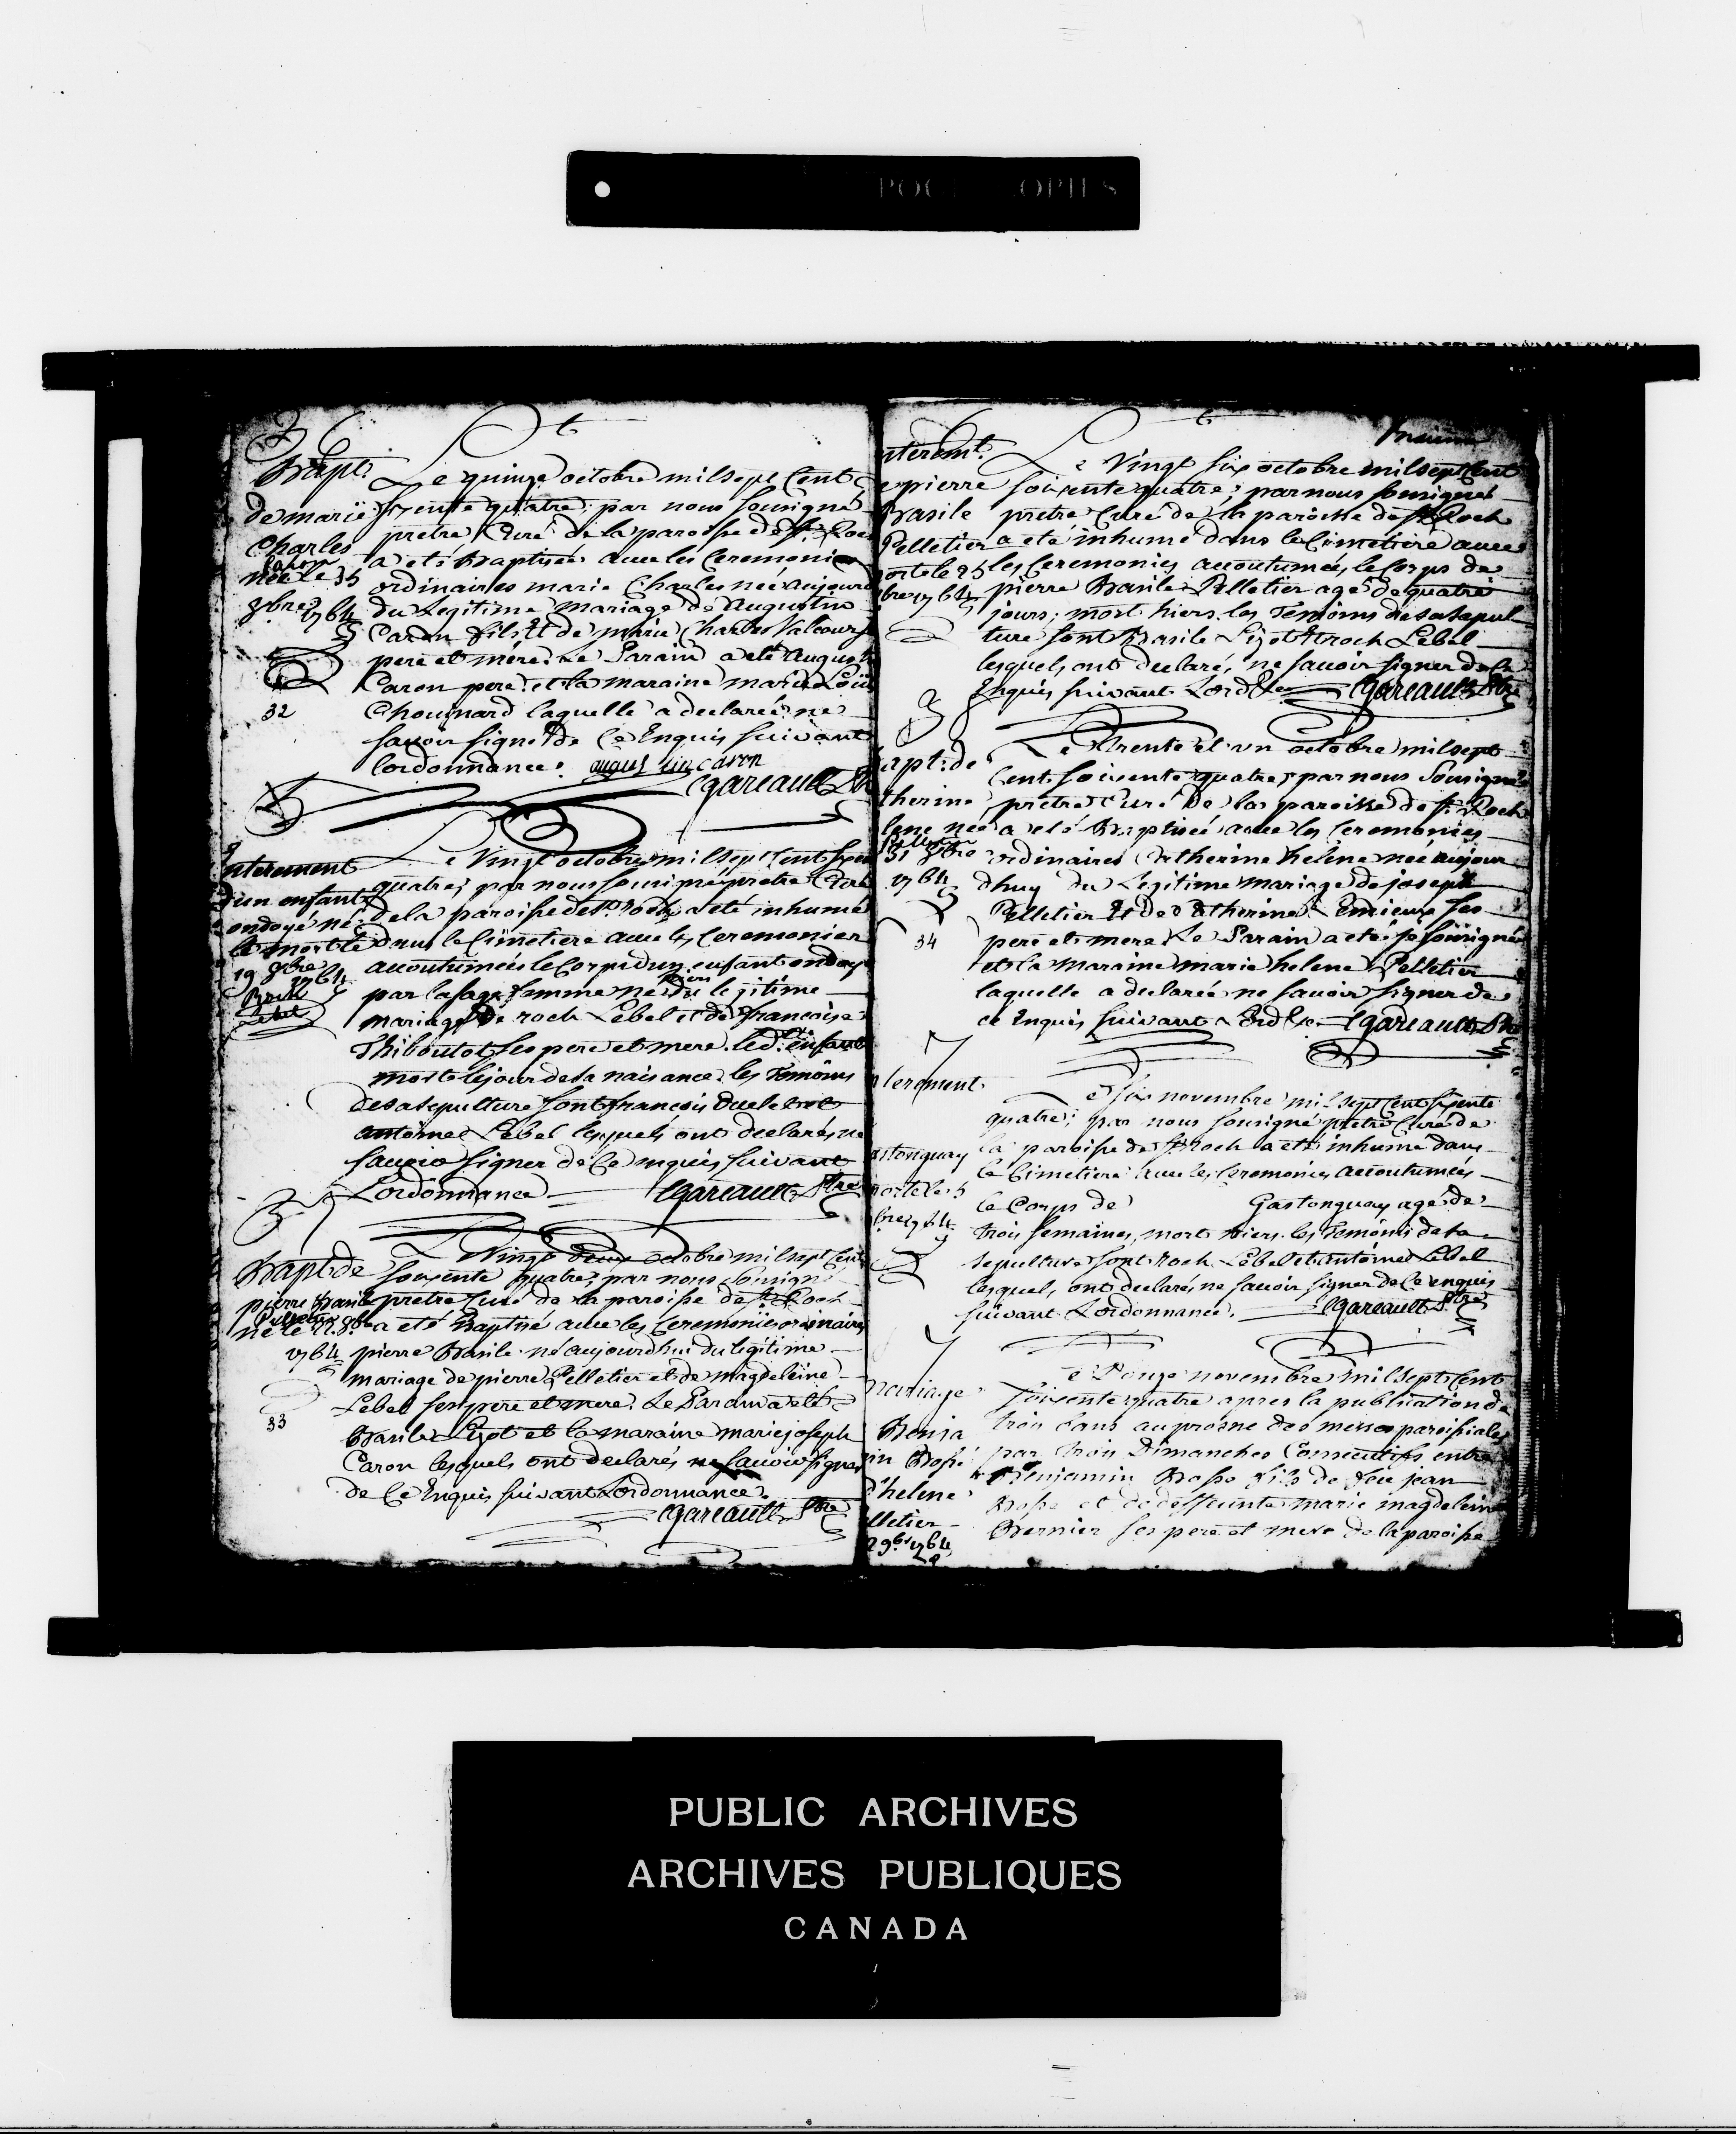 POC OPIES
Bapt.
de marie
Charles
Caron
née le 15
8bre 1764
32
Le quinze octobre mil sept Cent
soixente quatre; par nous sousigné
pretre Curé de la paroisse de St. Roc
a eté Baptisée avec les Ceremonies
ordinaires marie Charles née aujourd
du Legitime mariage de augustin
Caron fils et de marie Charles Valcourt
pere et mere. Le Parain a eté august
Caron pere et la maraine marie Loui
Chouinard laquelle a declarée ne
savoir signer de Ce Enquis suivant
Lordonnance. augustin caron
Gareault Ptr
Interement
d'un enfant
ondoyé né
le mort le
19 8bre
1764
Roch
Lebel
Le Vingt octobre mil sept Cent soixen
quatre; par nous sousigné pretre Curé
de la paroisse de St. roch a eté inhumé
dans le Cimetiere avec les Ceremonies
accoutumées le Corps dun enfant ondoy
par la sage femme né hiers du legitime
mariage de roch Lebel et de françoise
Thiboutot ses pere et mere. led. enfant
mort le jour de sa naisance. les Temoins
de sa sepulture sont francois Duclet et
antoine Lebel lesquels ont declarés ne
savoir signer de Ce enquis suivant
Lordonnance Gareault Ptre
Bapt. de
pierre Basile
Pelletier
né le 22. 8bre
1764
33
Le Vingt deux octobre mil sept Cent
soixente quatre; par nous sousigné
pretre Curé de la paroisse de St. Roch
a eté Baptisé avec les Ceremonies ordinaires
pierre Basile né aujourdhui du legitime
mariage de pierre Pelletier et de magdeleine
Lebel ses pere et mere. Le Parain a eté
Basile Lizot et la maraine marie joseph
Caron lesquels ont declarés ne savoir signer
de Ce Enquis suivant Lordonnance.
Gareault Ptre
nterem.t
e pierre
Basile
Pelletier
ort le 25
bre 1764
Le Vingt six octobre mil sept Cent
soixente quatre; par nous sousigné
pretre Curé de la paroisse de St. Roch
a eté inhumé dans le Cimetiere avec
les Ceremonies accoutumées, le Corps de
pierre Basile Pelletier agé de quatre
jours; mort hiers. les Temoins de sa sepul
ture sont Basile Lizot et roch Lebel
lesquels ont declaré, ne savoir signer de Ce
Enquis suivant Lord. &c Gareault Ptre
apt. de
therine
lene née
Pelletier
31 8bre
1764
34
Le Trente et un octobre mil sept
Cent soixente quatre; par nous sousigné
pretre Curé de la paroisse de St. Roch
a eté Baptisée avec les Ceremonies
ordinaires Catherine helene née aujour
dhuy du Legitime mariage de joseph
Pelletier et de Catherine Lemieux ses
pere et mere. Le Parain a eté je sousigné
et la maraine marie helene Pelletier
laquelle a declarée ne savoir signer de
ce Enquis suivant Lord &c Gareault Ptre
nterement
astonguay
mort le 5
bre 1764
Le six novembre mil sept Cent soixente
quatre; par nous sousigné pretre Curé de
la paroisse de St. Roch a eté inhumé dans
le Cimetiere avec les Ceremonies accoutumées
le Corps de Gastonguay agé de
trois semaines, mort hiers. les Temoins de sa
sepulture sont Roch Lebel et antoine Lebel
lesquel, ont declaré, ne savoir signer de Ce enquis
suivant Lordonnance. Gareault Ptre
mariage
Benja
in Bossé
helene
lletier
9bre 1764
Le Douze novembre mil sept Cent
soixente quatre apres la publication de
trois bans au prosne des messes paroissiales
par trois Dimanches Consecutifs entre
Benjamin Bossé fils de feu jean
Bossé et de deffeunte marie magdeleine
Bernier ses pere et mere de la paroisse
PUBLIC ARCHIVES
ARCHIVES PUBLIQUES
CANADA